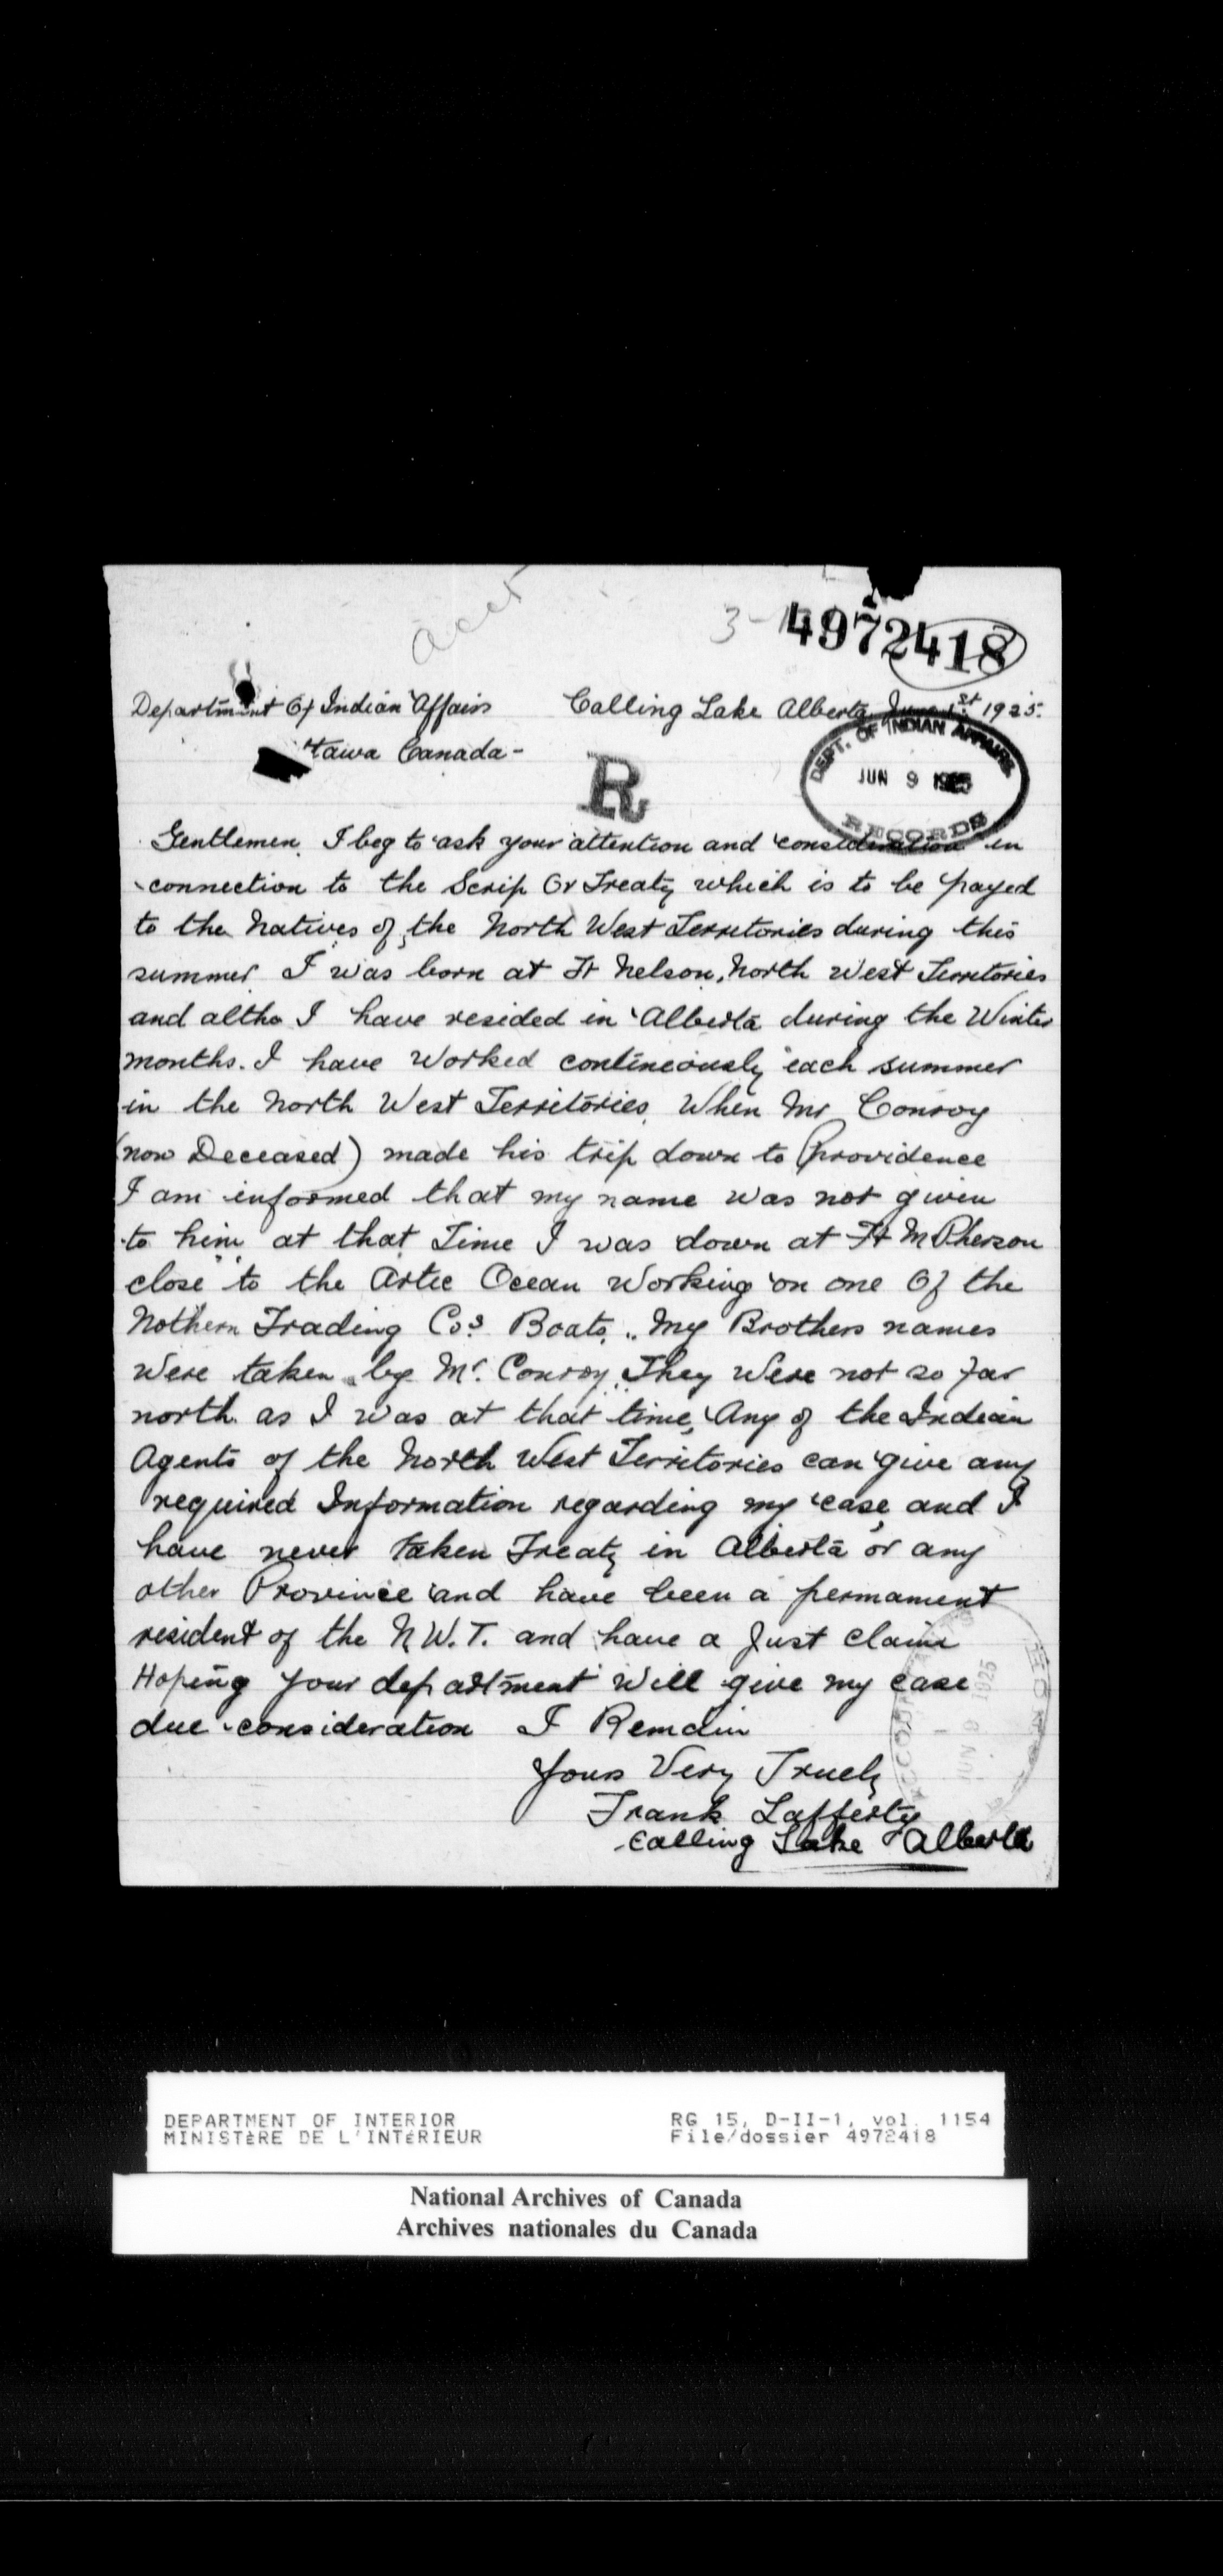 Acct
4972418
Department Of Indian Affairs Calling Lake Alberta June 1st 1925.
tawa Canada -
R
DEPT. OF INDIAN AFFAIRS
JUN 9 1925
RECORDS
Gentlemen. I beg to ask your attention and consideration in
connection to the Scrip Or Treaty which is to be payed
to the Natives of the North West Territories during this
summer. I was born at Ft Nelson, North West Territories
and altho I have resided in Alberta during the Winter
months. I have Worked contineously each summer
in the North West Territories. When Mr Conroy
(now Deceased) made his trip down to Providence
I am informed that my name was not given
to him at that Time I was down at Ft McPherson
close to the Artic Ocean Working on one Of the
Nothern Trading Cos Boats. My Brothers names
Were taken by Mr. Conroy. They Were not so far
north as I was at that time, Any of the Indian
Agents of the North West Territories can give any
required Information regarding my case, and I
have never taken Treaty in Alberta or any
other Province and have been a permament
resident of the N.W.T. and have a Just claim
Hoping your department will give my case
due consideration I Remain
Yours Very Truely
Frank Lafferty
Calling Lake Alberta
JUN 9 1925
DEPARTMENT OF INTERIOR RG 15, D-II-1, vol. 1154
MINISTÈRE DE L'INTÉRIEUR File/dossier 4972418
National Archives of Canada
Archives nationales du Canada